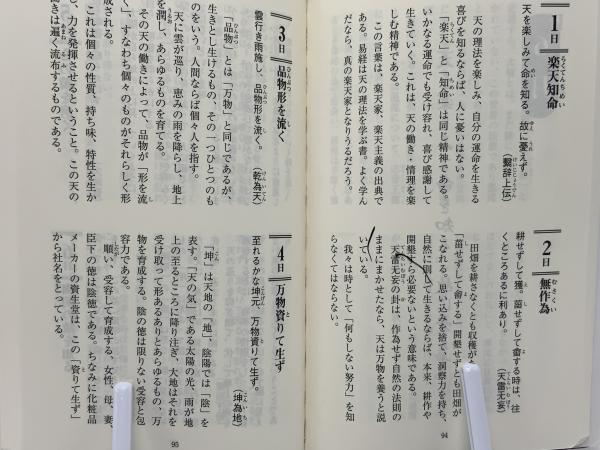 1日 楽天知命
らくてんちめい
天を楽しみて命を知る。故に憂えず。
（繫辞上伝）
天の理法を楽しみ、自分の運命を生きる
喜びを知るならば、人に憂いはない。
「楽天」と「知命」は同じ精神である。
いかなる運命でも受け容れ、喜び感謝して
生きていく。これは、天の働き・情理を楽
しむ精神である。
この言葉は、楽天家、楽天主義の出典で
ある。易経は天の理法を学ぶ書。よく学ん
だなら、真の楽天家となりうるだろう。
2日 無作為
むさくい
耕せずして獲。菑せずして畬する時は、往
くところあるに利あり。
（天雷无妄）
田畑を耕さなくとも収穫が
「菑せずして畬する」開墾せずとも田畑が
こなれる。思い込みを捨て、洞察力を持ち、
自然に則して生きるならば、本来、耕作や
開墾すら必要ないという意味である。
天雷无妄の卦は、作為せず自然の法則の
ままにまかせたなら、天は万物を養うと説
いている。
我々は時として「何もしない努力」を知
らなくてはならない。
94
3日 品物形を流く
雲行き雨施し、品物形を流く。
（乾為天）
「品物」とは「万物」と同じであるが、
生きとし生けるもの、その一つひとつのも
のをいう。人間ならば個々人を指す。
天に雲が巡り、恵みの雨を降らし、地上
を潤し、あらゆるものを育てる。
その天の働きによって、品物が「形を流
く」、すなわち個々のものがそれらしく形
成される。
これは個々の性質、持ち味、特性を生か
し、力を発揮させるということ。この天の
みは遍く流布するものである。
4日 万物資りて生ず
至れるかな坤元、万物資りて生ず。
（坤為地）
「坤」は天地の「地」、陰陽では「陰」を
表す。「天の気」である太陽の光、雨が地
上の至るところに降り注ぎ、大地はそれを
受け取って形あるありとあらゆるもの、万
物を育成する。陰の徳は限りない受容と包
容力である。
順い、受容して育成する、女性、母、妻、
臣下の徳は陰徳である。ちなみに化粧品
メーカーの資生堂は、この「資りて生ず」
から社名をとっている。
95